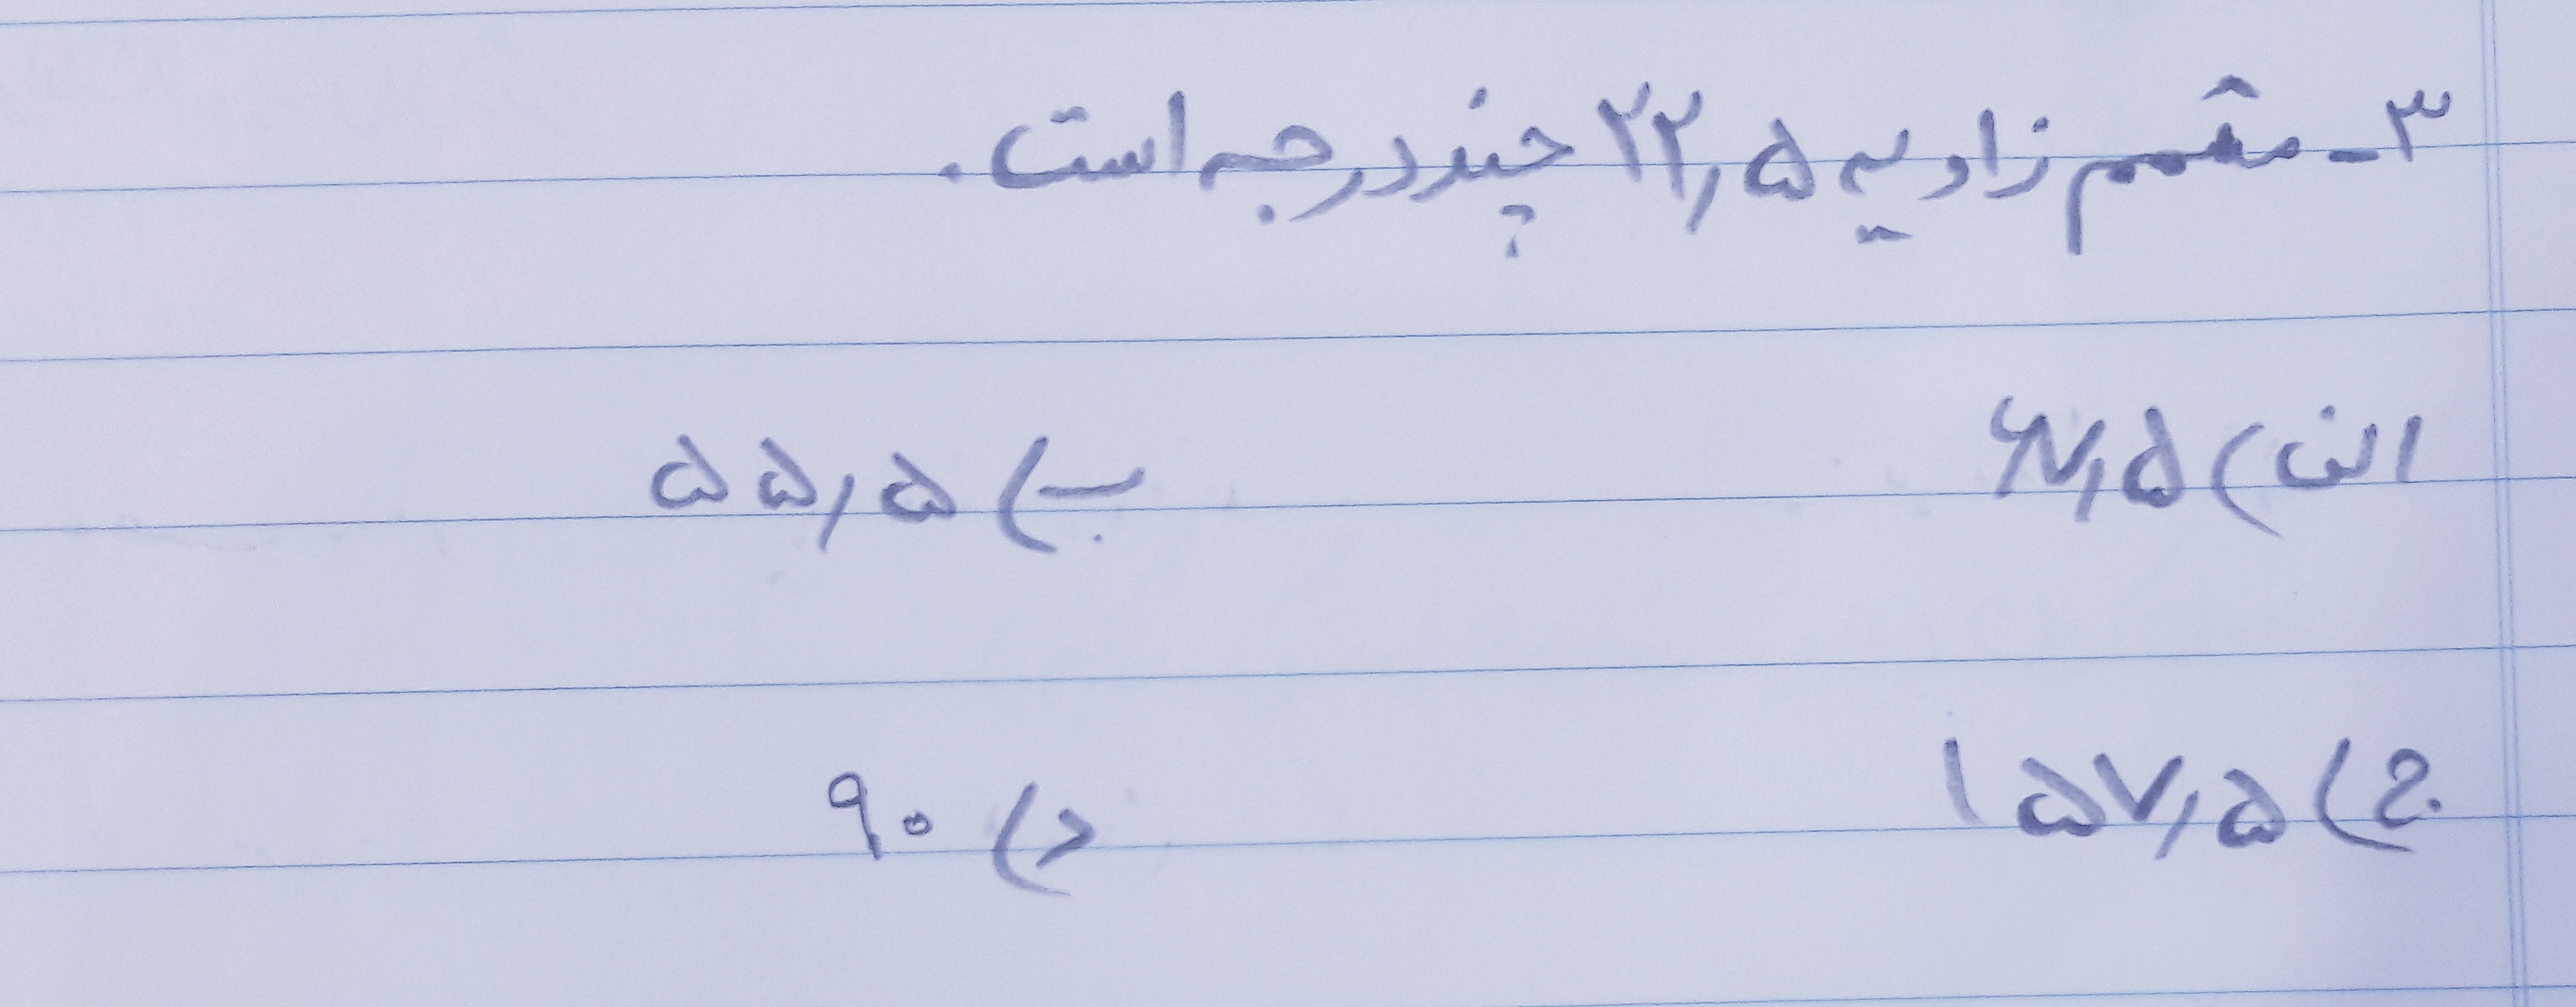 ۳- متمم زاویه ۲۲٫۵ چند درجه است.
الف) ۶۷٫۵ ب) ۵۵٫۵
ج) ۱۵۷٫۵ د) ۹۰